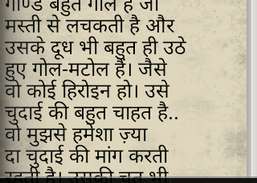 गाण्ड बहुत गोल है जो
मस्ती से लचकती है और
उसके दूध भी बहुत ही उठे
हुए गोल-मटोल हैं। जैसे
वो कोई हिरोइन हो। उसे
चुदाई की बहुत चाहत है..
वो मुझसे हमेशा ज़्या
दा चुदाई की मांग करती
रहती है। उसकी चूत भी